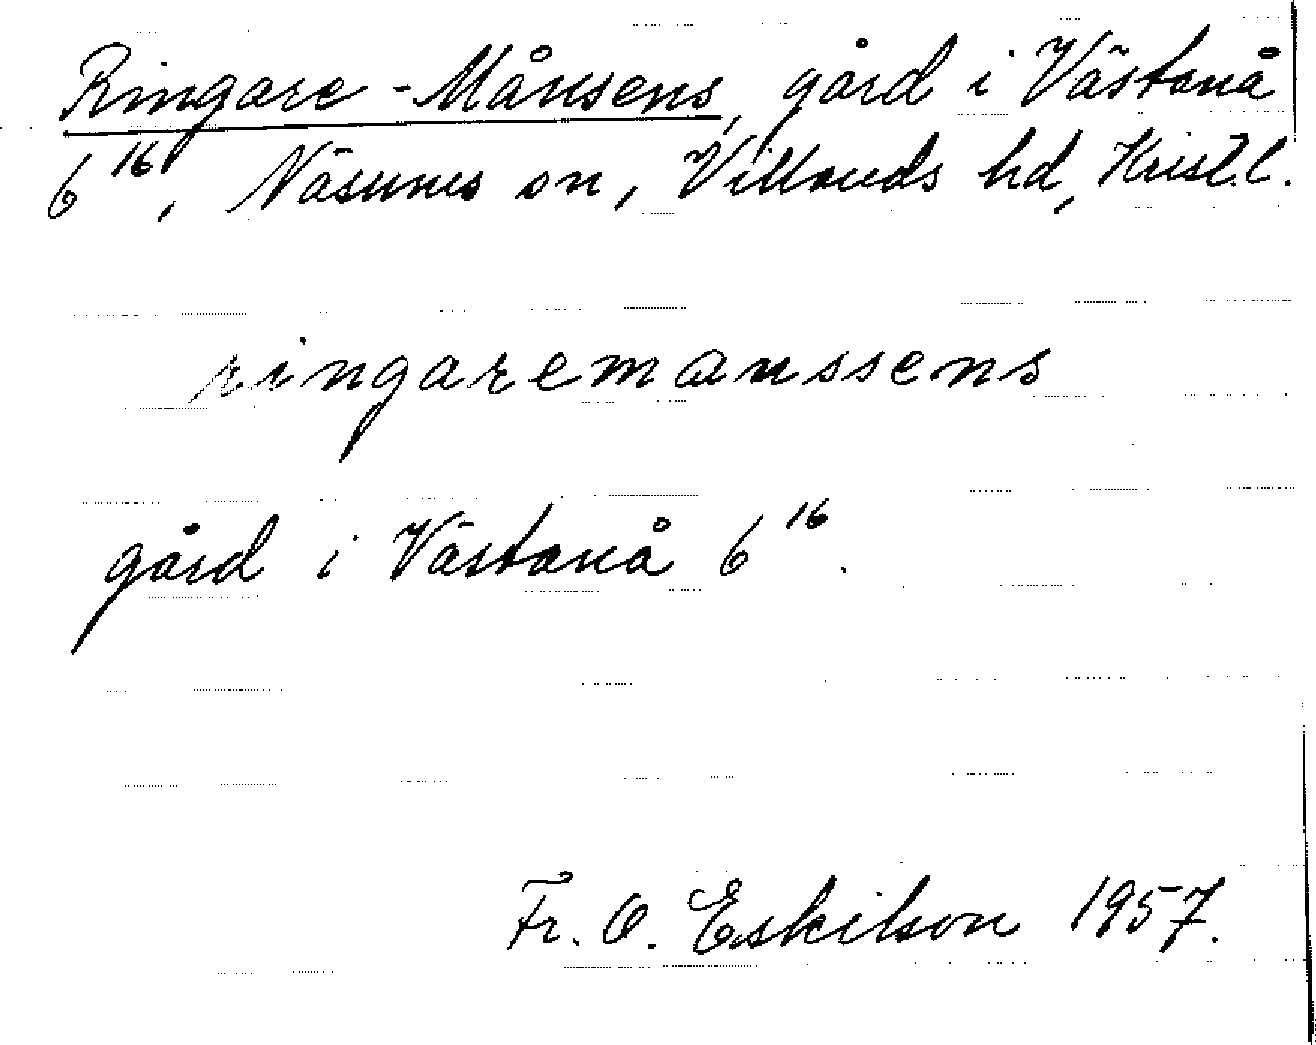 Ringare-Månsens, gård i Västanå
6¹⁶, Näsums sn, Villands hd, Krist.l.
ringaremanssens
gård i Västanå 6¹⁶.
Fr. O. Eskilson 1957.